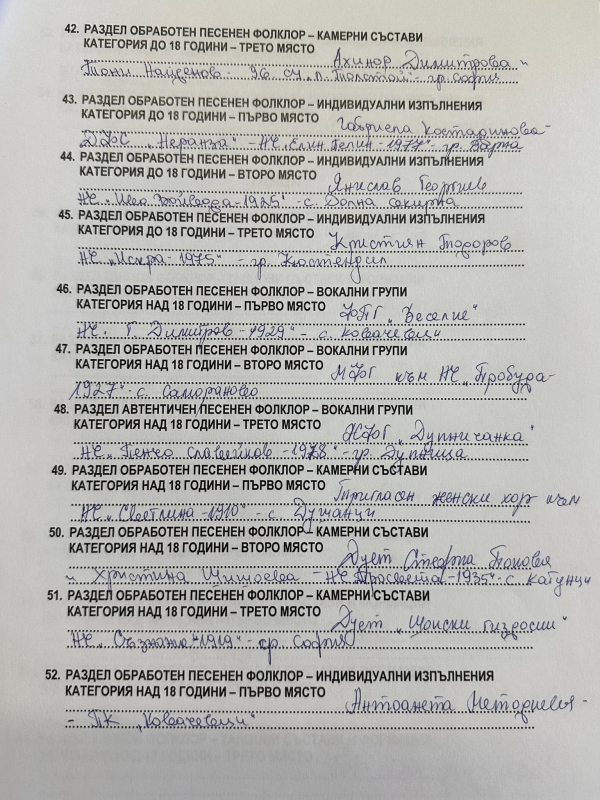 42. РАЗДЕЛ ОБРАБОТЕН ПЕСЕНЕН ФОЛКЛОР – КАМЕРНИ СЪСТАВИ
КАТЕГОРИЯ ДО 18 ГОДИНИ – ТРЕТО МЯСТО Ахинор Димитрова и
Тони Найденов - 96 СУ „Л. Толстой" - гр. София
43. РАЗДЕЛ ОБРАБОТЕН ПЕСЕНЕН ФОЛКЛОР – ИНДИВИДУАЛНИ ИЗПЪЛНЕНИЯ
КАТЕГОРИЯ ДО 18 ГОДИНИ – ПЪРВО МЯСТО Габриела Костадинова -
„Неранза" - НЧ „Елин Пелин - 1977" - гр. Варна
44. РАЗДЕЛ ОБРАБОТЕН ПЕСЕНЕН ФОЛКЛОР – ИНДИВИДУАЛНИ ИЗПЪЛНЕНИЯ
КАТЕГОРИЯ ДО 18 ГОДИНИ – ВТОРО МЯСТО Янислав Георгиев
НЧ „ Войвода - 1925" - с. Долна Секирна
45. РАЗДЕЛ ОБРАБОТЕН ПЕСЕНЕН ФОЛКЛОР – ИНДИВИДУАЛНИ ИЗПЪЛНЕНИЯ
КАТЕГОРИЯ ДО 18 ГОДИНИ – ТРЕТО МЯСТО Кристиян Тодоров
НЧ „Искра - 1975" - гр. Кюстендил
46. РАЗДЕЛ ОБРАБОТЕН ПЕСЕНЕН ФОЛКЛОР – ВОКАЛНИ ГРУПИ
КАТЕГОРИЯ НАД 18 ГОДИНИ – ПЪРВО МЯСТО ФПГ „Веселие"
НЧ „Г. Димитров - 1929" - с. Ковачевци
47. РАЗДЕЛ ОБРАБОТЕН ПЕСЕНЕН ФОЛКЛОР – ВОКАЛНИ ГРУПИ
КАТЕГОРИЯ НАД 18 ГОДИНИ – ВТОРО МЯСТО МФГ към НЧ „Пробуда -
1927" - с. Самораново
48. РАЗДЕЛ АВТЕНТИЧЕН ПЕСЕНЕН ФОЛКЛОР – ВОКАЛНИ ГРУПИ
КАТЕГОРИЯ НАД 18 ГОДИНИ – ТРЕТО МЯСТО ЖФГ „Дупничанка"
НЧ „Пенчо Славейков - 1978" - гр. Дупница
49. РАЗДЕЛ ОБРАБОТЕН ПЕСЕНЕН ФОЛКЛОР – КАМЕРНИ СЪСТАВИ
КАТЕГОРИЯ НАД 18 ГОДИНИ – ПЪРВО МЯСТО Тригласен женски хор към
НЧ „Светлина - 1910" - с. Душанци
50. РАЗДЕЛ ОБРАБОТЕН ПЕСЕНЕН ФОЛКЛОР – КАМЕРНИ СЪСТАВИ
КАТЕГОРИЯ НАД 18 ГОДИНИ – ВТОРО МЯСТО Дует Стефка
и Христина - НЧ „Просвета - 1935" - с. Катунци
51. РАЗДЕЛ ОБРАБОТЕН ПЕСЕНЕН ФОЛКЛОР – КАМЕРНИ СЪСТАВИ
КАТЕГОРИЯ НАД 18 ГОДИНИ – ТРЕТО МЯСТО Дует „Шопски гиздосии"
НЧ „ - 1919" - гр. София
52. РАЗДЕЛ ОБРАБОТЕН ПЕСЕНЕН ФОЛКЛОР – ИНДИВИДУАЛНИ ИЗПЪЛНЕНИЯ
КАТЕГОРИЯ НАД 18 ГОДИНИ – ПЪРВО МЯСТО Антоанета -
- ПК „Ковачевци"